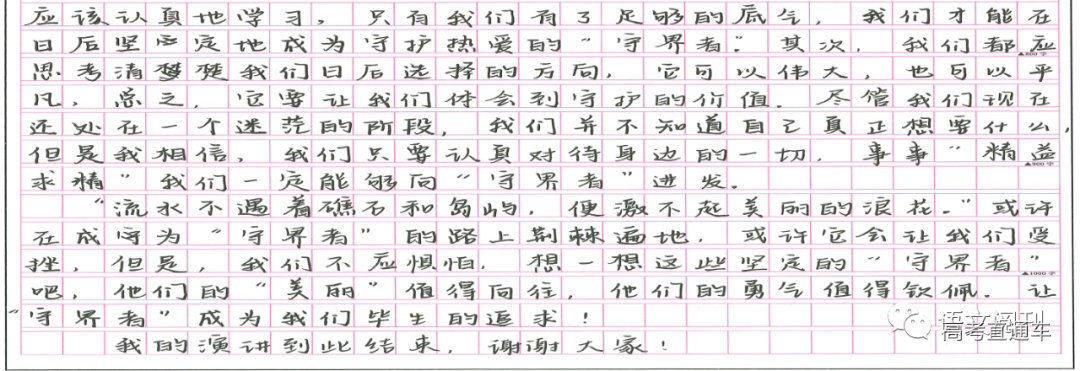 应该认真地学习，只有我们有了足够的底气，我们才能在
日后坚定地成为守护热爱的“守界者”。其次，我们都应
思考清楚我们日后选择的方向，它可以伟大，也可以平
凡，总之，它要让我们体会到守护的价值。尽管我们现在
还处在一个迷茫的阶段，我们并不知道自己真正想要什么，
但是我相信，我们只要认真对待身边的一切，事事“精益
求精”我们一定能够向“守界者”进发。
“流水不遇着礁石和岛屿，便激不起美丽的浪花。”或许
在成为“守界者”的路上荆棘遍地，或许它会让我们受
挫，但是，我们不应惧怕，想一想这些坚定的“守界者”
▲1000字
吧，他们的“美丽”值得向往，他们的勇气值得钦佩。让
“守界者”成为我们毕生的追求！
我的演讲到此结束，谢谢大家！
高考直通车